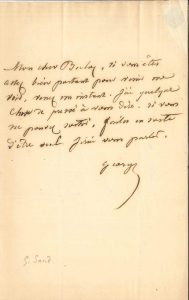 Mon cher Buloz, si vous êtes
assez bien portant pour venir me
voir, venez un instant. J'ai quelque
chose de pressé à vous dire. Si vous
ne pouvez sortir, faites en sorte
d'être seul. J'irai vous parler.
George
G. Sand